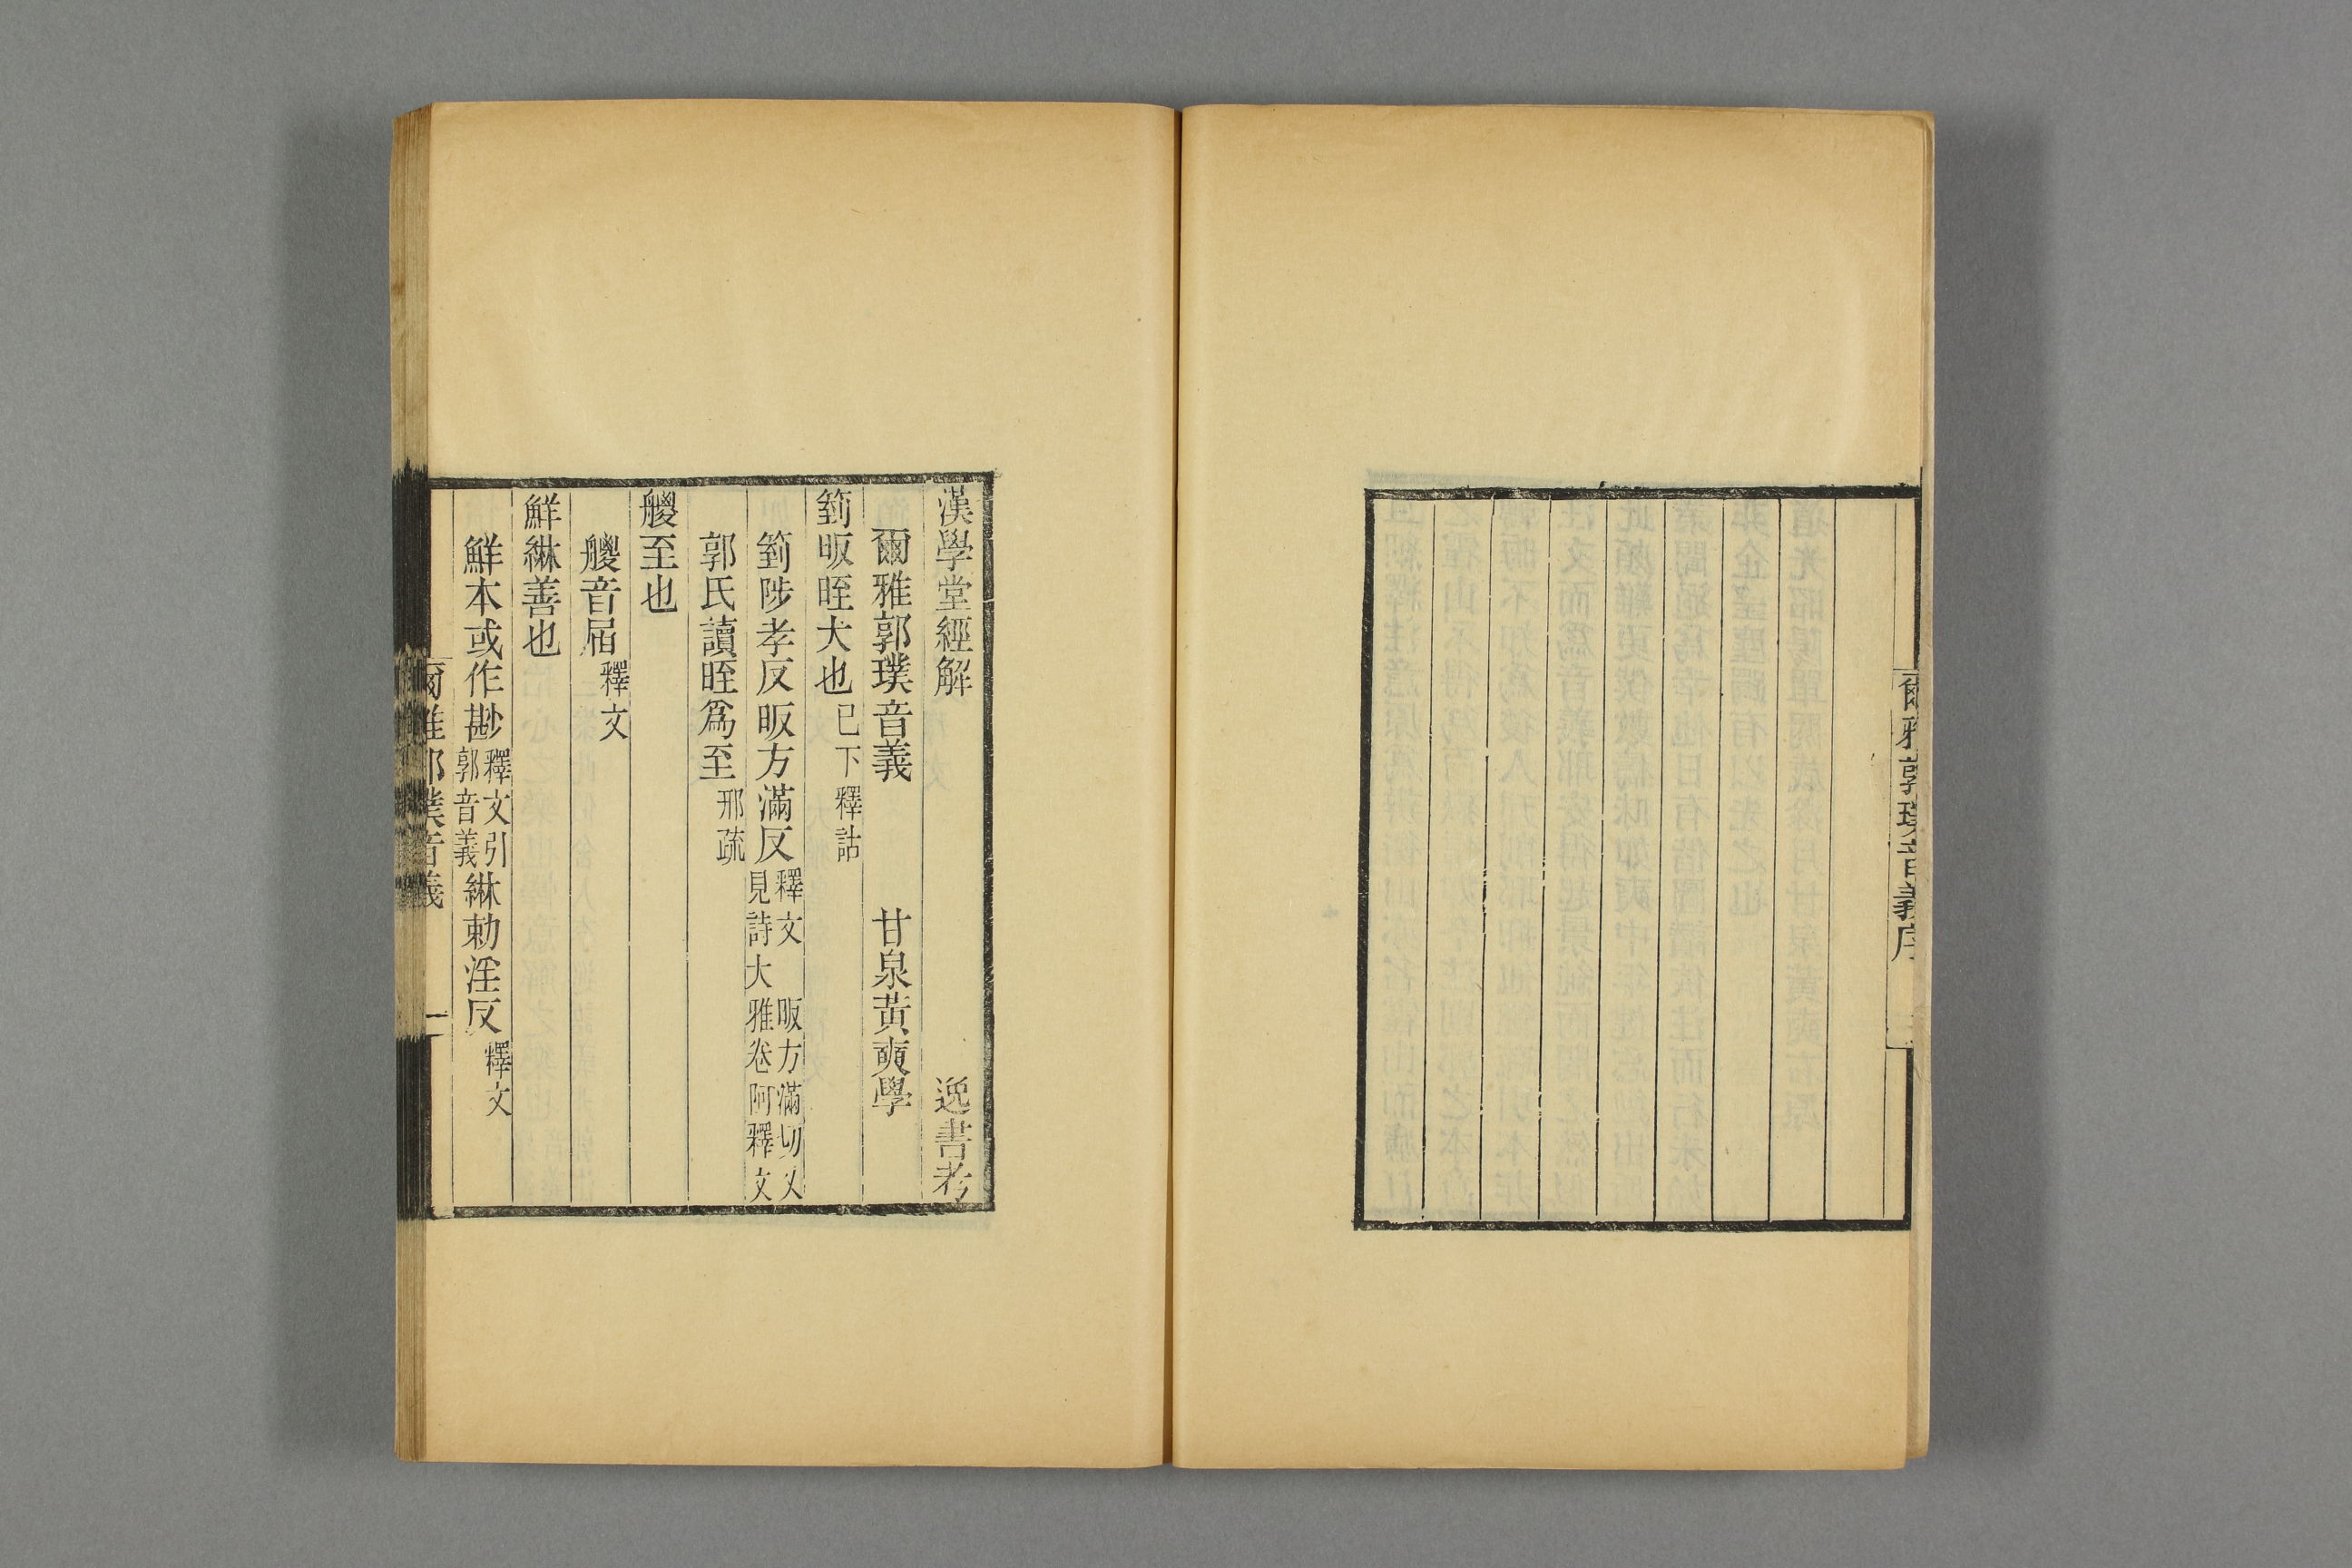 爾雅郭璞音義序
漢學堂經解　逸書考
爾雅郭璞音義　甘泉黃奭學
箌昄晊大也已下釋詁
箌陟孝反昄方滿反釋文　昄方滿切又見詩大雅卷阿釋文
郭氏讀晊爲至邢疏
艐至也
艐音届釋文
鮮綝善也
鮮本或作尠釋文引郭音義綝勑淫反釋文
爾雅郭璞音義　一